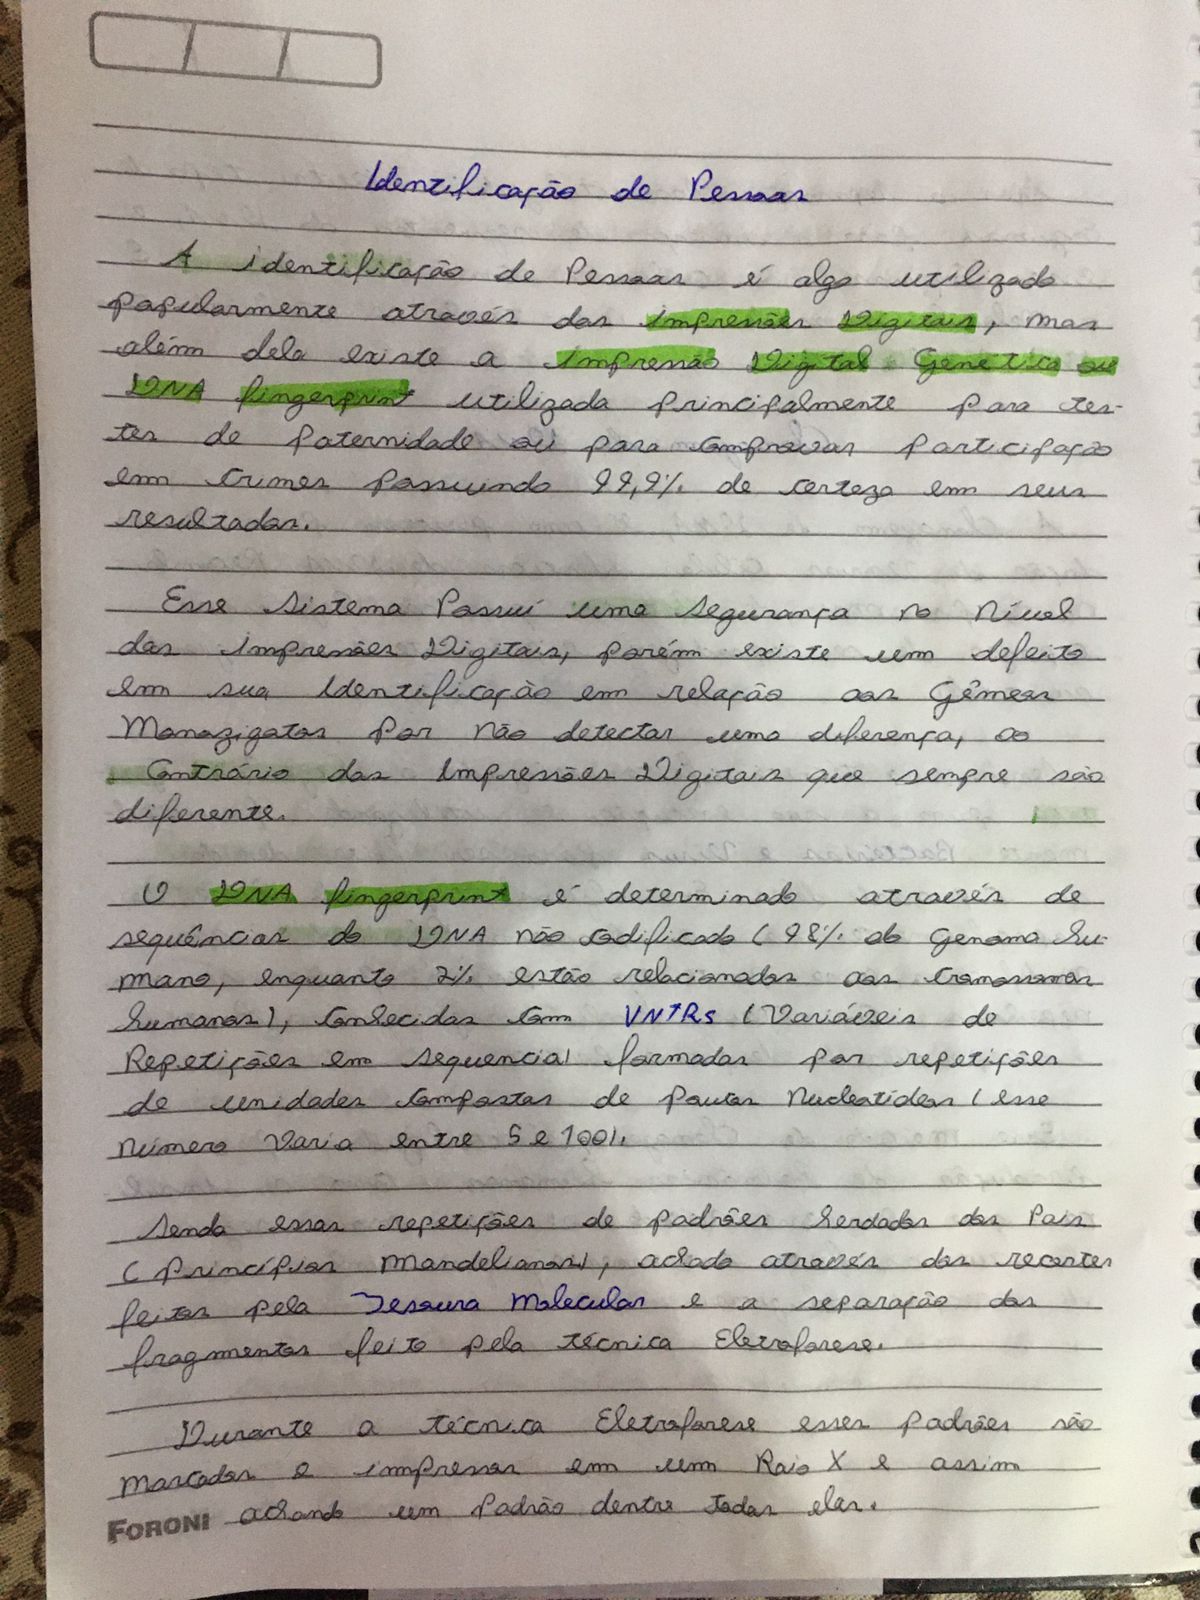 Identificação de Pessoas
A identificação de Pessoas é algo utilizado
popularmente através das impressões Digitais, mas
além dela existe a impressão Digital Genética ou
DNA fingerprint utilizada principalmente para tes-
tes de paternidade ou para comprovar participação
em crimes possuindo 99,9% de certeza em seus
resultados.
Esse sistema Possuí uma segurança no Nível
das impressões Digitais, porém existe um defeito
em sua identificação em relação aos Gêmeos
Monozigotos Por não detectar uma diferença, ao
Contrário das Impressões Digitais que sempre são
diferente.
O DNA fingerprint é determinado através de
sequências do DNA não codificado (98% do Genoma hu-
mano, enquanto 2% estão relacionados aos cromossomos
humanos), conhecidas com VNTRs (Variáveis de
Repetições em sequencia) formadas por repetições
de unidades compostas de poucos Nucleotídeos (esse
número varia entre 5 e 100).
Sendo essas repetições de padrões herdados dos Pais
(Princípios Mandelianos), achado através dos recortes
feitos pela Tesoura Molecular e a separação dos
fragmentos feito pela técnica Eletroforese.
Durante a técnica Eletroforese esses padrões são
marcados e impressos em um Raio X e assim
achando um padrão dentre todos eles.
FORONI